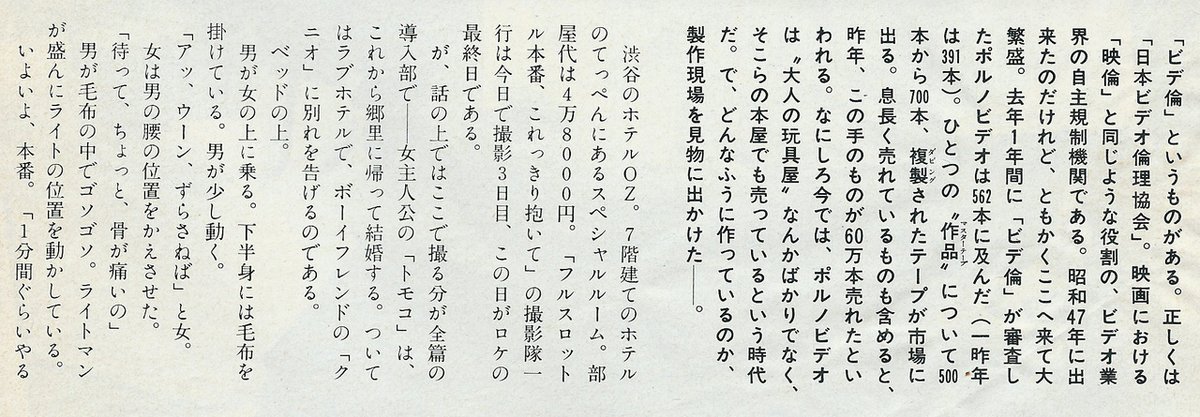 「ビデ倫」というものがある。正しくは
「日本ビデオ倫理協会」。映画における
「映倫」と同じような役割の、ビデオ業
界の自主規制機関である。昭和47年に出
来たのだけれど、ともかくここへ来て大
繁盛。去年1年間に「ビデ倫」が審査し
たポルノビデオは562本に及んだ（一昨年
は391本）。ひとつの〝作品〟について500
本から700本、複製されたテープが市場に
出る。息長く売れているものも含めると、
昨年、この手のものが60万本売れたとい
われる。なにしろ今では、ポルノビデオ
は〝大人の玩具屋〟なんかばかりでなく、
そこらの本屋でも売っているという時代
だ。で、どんなふうに作っているのか、
製作現場を見物に出かけた――。
渋谷のホテルOZ。7階建てのホテル
のてっぺんにあるスペシャルルーム。部
屋代は4万8000円。「フルスロット
ル本番、これっきり抱いて」の撮影隊一
行は今日で撮影3日目、この日がロケの
最終日である。
が、話の上ではここで撮る分が全篇の
導入部で――女主人公の「トモコ」は、
これから郷里に帰って結婚する。ついて
はラブホテルで、ボーイフレンドの「ク
ニオ」に別れを告げるのである。
ベッドの上。
男が女の上に乗る。下半身には毛布を
掛けている。男が少し動く。
「アッ、ウーン、ずらさねば」と女。
女は男の腰の位置をかえさせた。
「待って、ちょっと、骨が痛いの」
男が毛布の中でゴソゴソ。ライトマン
が盛んにライトの位置を動かしている。
いよいよ、本番。「1分間ぐらいやる